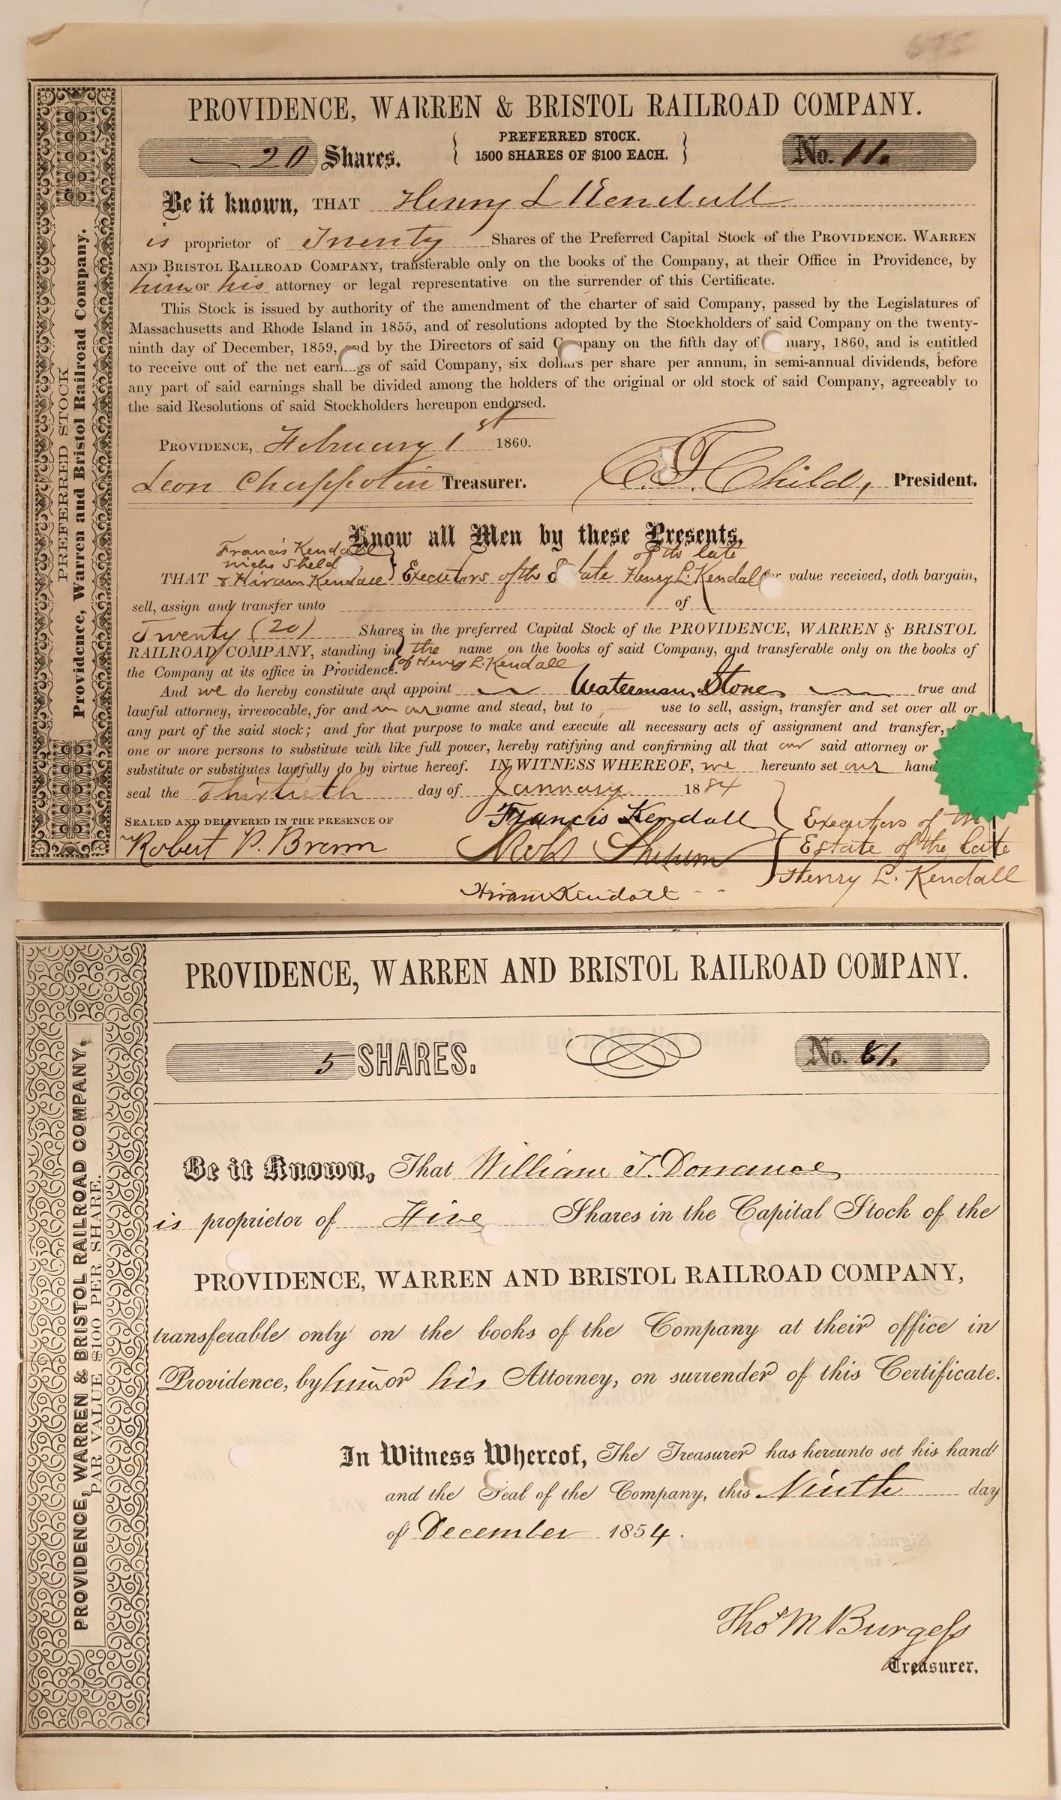 675
PROVIDENCE, WARREN & BRISTOL RAILROAD COMPANY.
20 Shares.
PREFERRED STOCK.
1500 SHARES OF $100 EACH.
No. 11.
Be it known, THAT Henry L Kendall
is proprietor of Twenty Shares of the Preferred Capital Stock of the PROVIDENCE. WARREN
AND BRISTOL RAILROAD COMPANY, transferable only on the books of the Company, at their Office in Providence, by
him or his attorney or legal representative on the surrender of this Certificate.
This Stock is issued by authority of the amendment of the charter of said Company, passed by the Legislatures of
Massachusetts and Rhode Island in 1855, and of resolutions adopted by the Stockholders of said Company on the twenty-
ninth day of December, 1859, and by the Directors of said Company on the fifth day of January, 1860, and is entitled
to receive out of the net earnings of said Company, six dollars per share per annum, in semi-annual dividends, before
any part of said earnings shall be divided among the holders of the original or old stock of said Company, agreeably to
the said Resolutions of said Stockholders hereupon endorsed.
PROVIDENCE, February 1st 1860.
Leon Chappotin Treasurer.
C. T. Child, President.
Know all Men by these Presents,
Francis Kendall
THAT & Hiram Kendall } Executors of the Estate of the late Henry L. Kendall for value received, doth bargain,
sell, assign and transfer unto of
Twenty (20) Shares in the preferred Capital Stock of the PROVIDENCE, WARREN & BRISTOL
RAILROAD COMPANY, standing in the name on the books of said Company, and transferable only on the books of
of Henry L. Kendall
the Company at its office in Providence.
And we do hereby constitute and appoint Waterman Stone true and
lawful attorney, irrevocable, for and in our name and stead, but to use to sell, assign, transfer and set over all or
any part of the said stock; and for that purpose to make and execute all necessary acts of assignment and transfer,
one or more persons to substitute with like full power, hereby ratifying and confirming all that our said attorney or
substitute or substitutes lawfully do by virtue hereof. IN WITNESS WHEREOF, we hereunto set our hand
seal the Thirtieth day of January 1884
SEALED AND DELIVERED IN THE PRESENCE OF
Robert P. Brown
Francis Kendall
Hiram Kendall
Executors of the
Estate of the late
Henry L. Kendall
PREFERRED STOCK
Providence, Warren and Bristol Railroad Company.
PROVIDENCE, WARREN AND BRISTOL RAILROAD COMPANY.
5 SHARES.
No. 61.
Be it Known, That William T. Dorrance
is proprietor of Five Shares in the Capital Stock of the
PROVIDENCE, WARREN AND BRISTOL RAILROAD COMPANY,
transferable only on the books of the Company at their office in
Providence, by him or his Attorney, on surrender of this Certificate.
In Witness Whereof, The Treasurer has hereunto set his hand
and the Seal of the Company, this Ninth day
of December 1854.
Thos M Burgess
Treasurer.
PROVIDENCE, WARREN & BRISTOL RAILROAD COMPANY,
PAR VALUE $100 PER SHARE.